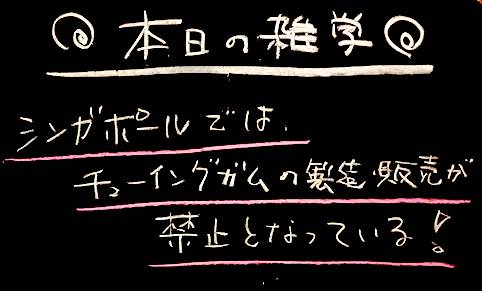 本日の雑学
シンガポールでは、
チューイングガムの製造・販売が
禁止となっている!